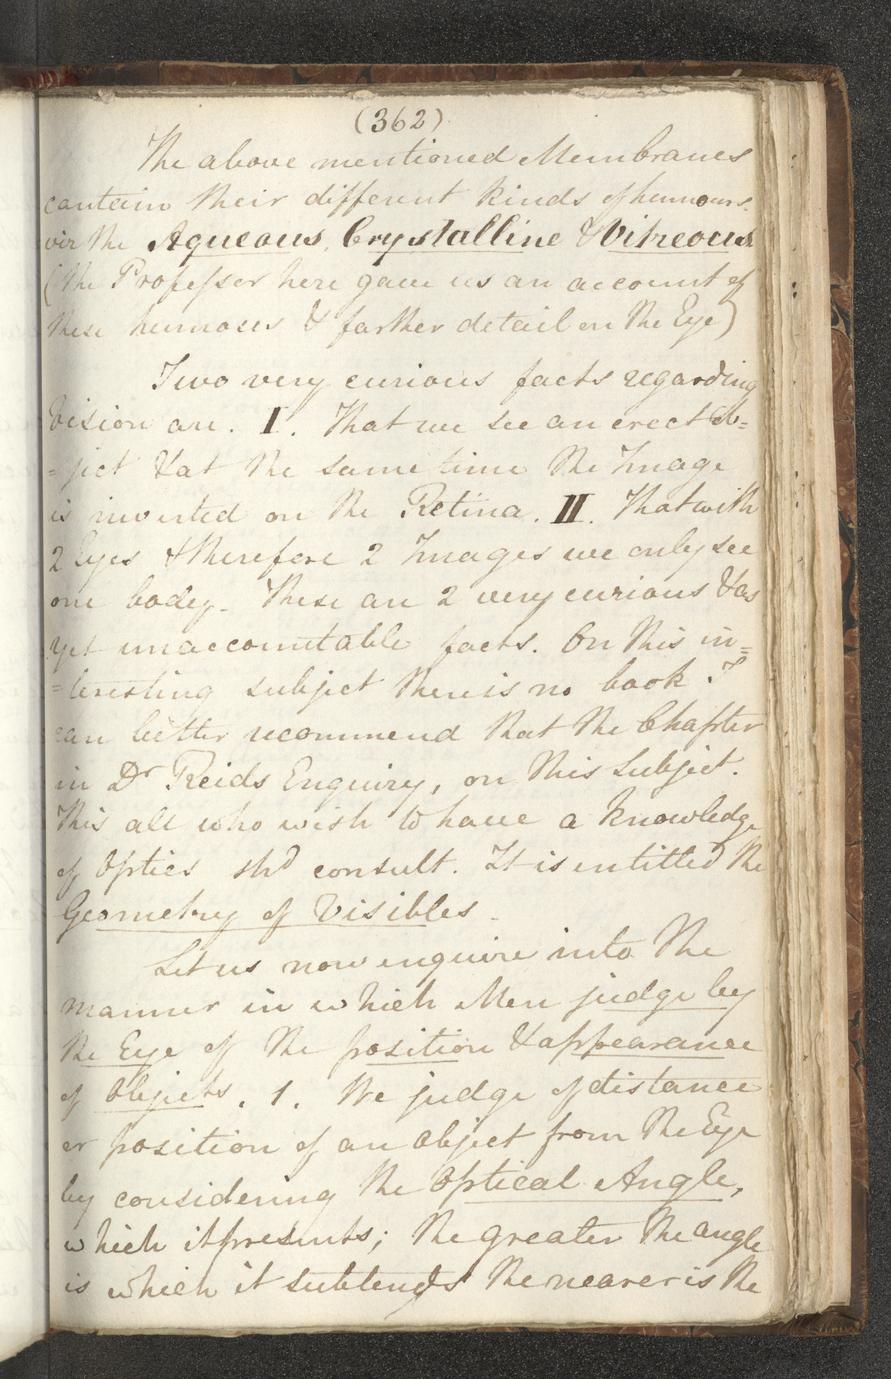 (362)
The above mentioned Membranes
contain their different kinds of humours.
viz the Aqueous, Crystalline & Vitreous
(the Professor here gave us an account of
these humours & farther detail on the Eye)
Two very curious facts regarding
Vision are. I. That we see an erect Ob=
=ject & at the same time the Image
is inverted on the Retina. II. That with
2 Eyes & therefore 2 Images we only see
one body. These are 2 very curious & as
yet unaccountable facts. On this in=
=teresting subject there is no book I
can better recommend that the Chapter
in Dr Reids Enquiry, on this Subject.
This all who wish to have a knowledge
of Optics shd consult. It is entitled the
Geometry of Visibles.
Let us now enquire into the
manner in which Men judge by
the Eye of the position & appearance
of Objects. 1. We judge of distance
or position of an Object from the Eye
by considering the Optical Angle,
which it presents; the greater the angle
is which it subtends the nearer is the